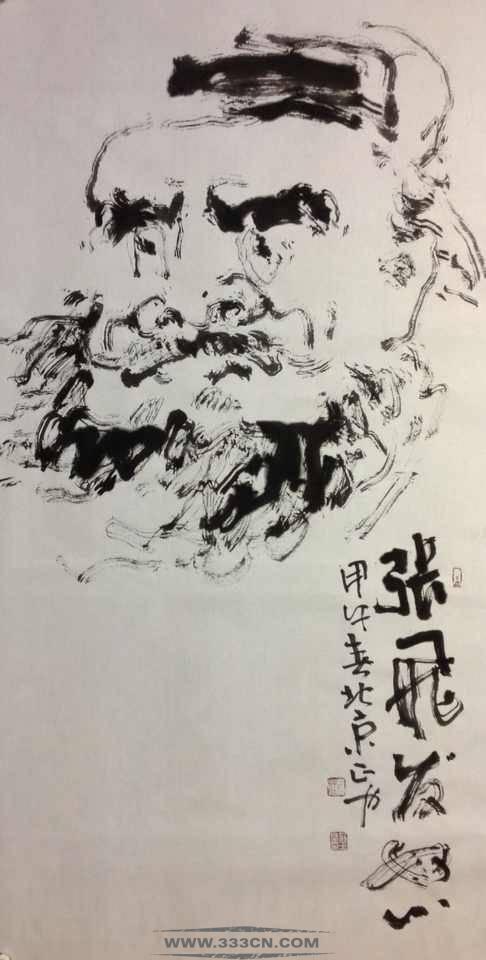 张飞发怒
甲午春北京正
WWW.333CN.COM